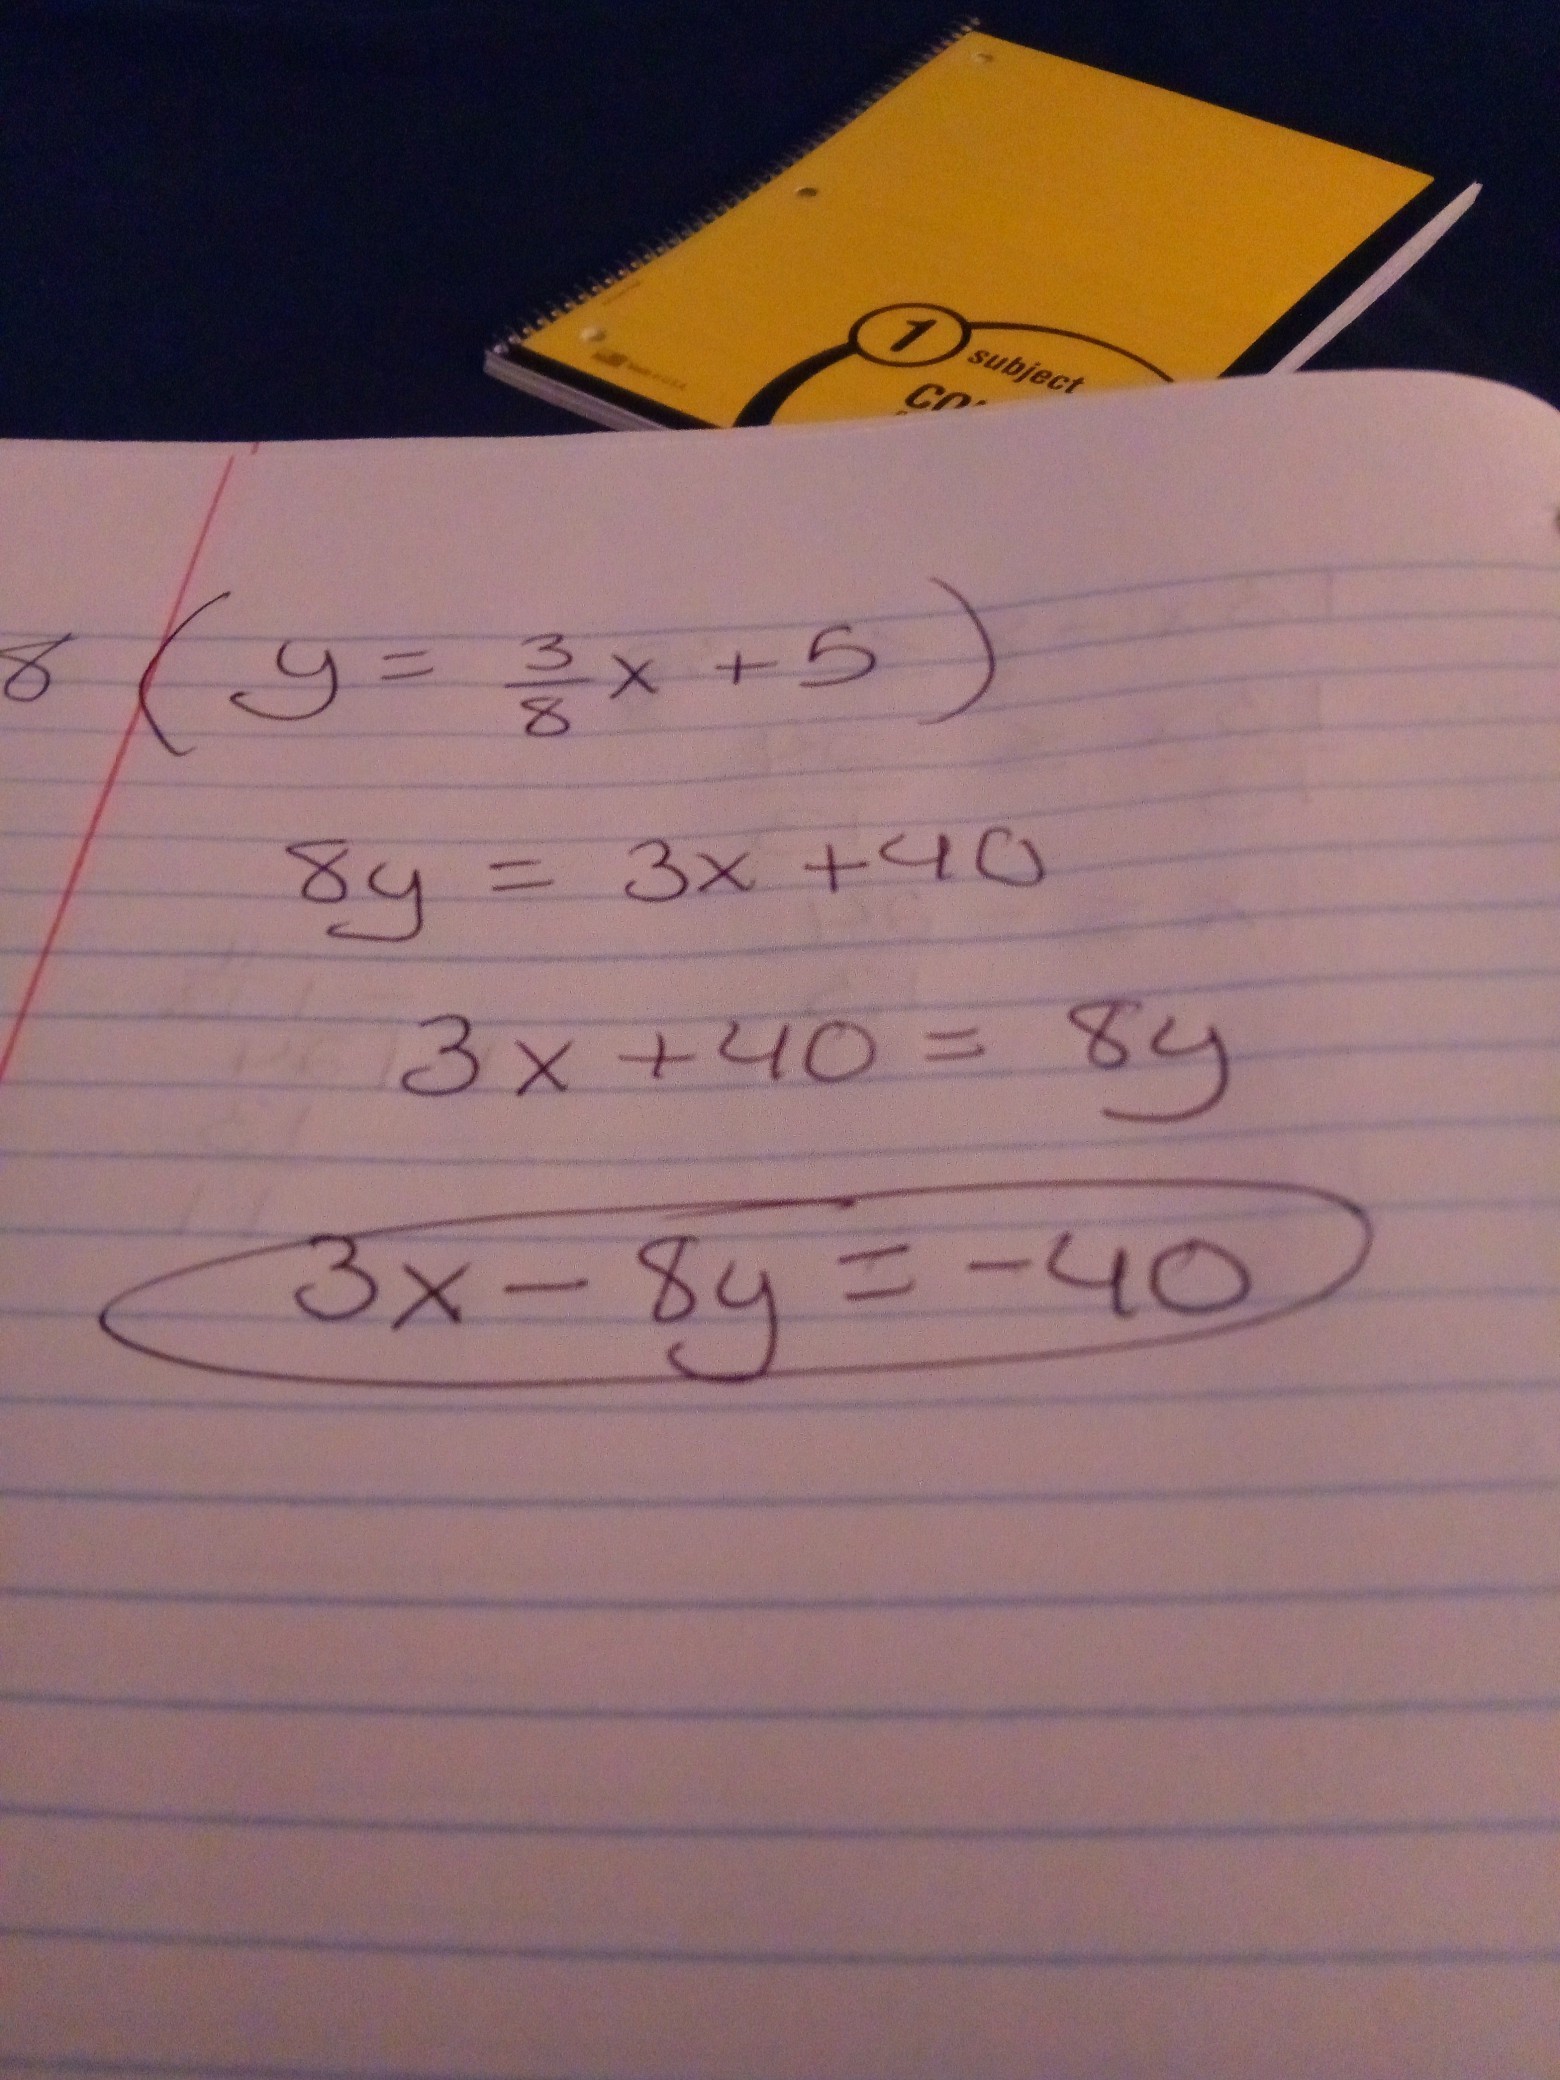 1 subject
8 ( y = 3/8 x + 5 )
8y = 3x + 40
3x + 40 = 8y
3x - 8y = -40